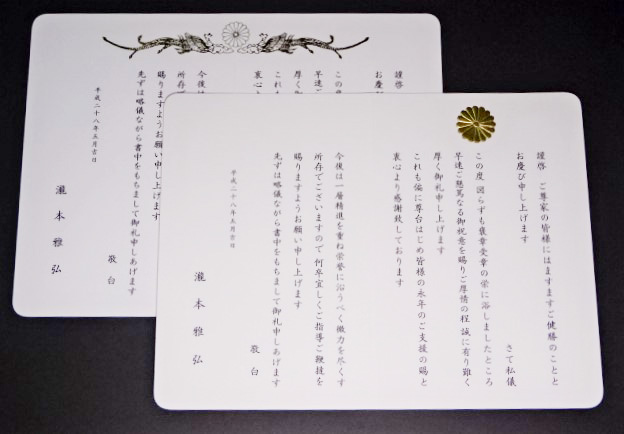 謹啓　ご尊家の皆様にはますますご健勝のことと
お慶び申し上げます
さて私儀
この度 図らずも褒章受章の栄に浴しましたところ
早速ご懇篤なる御祝意を賜りご厚情の程 誠に有り難く
厚く御礼申し上げます
これも偏に尊台はじめ皆様の永年のご支援の賜と
衷心より感謝致しております
今後は一層精進を重ね栄誉に沿うべく微力を尽くす
所存でございますので 何卒宜しくご指導ご鞭撻を
賜りますようお願い申し上げます
先ずは略儀ながら書中をもちまして御礼申しあげます
敬白
平成二十八年五月吉日
瀧本雅弘
謹啓
お慶び
この度
早速ご
厚く御
これも
衷心よ
今後は
所存で
賜りますようお願い申し上げます
先ずは略儀ながら書中をもちまして御礼申しあげます
敬白
平成二十八年五月吉日
瀧本雅弘